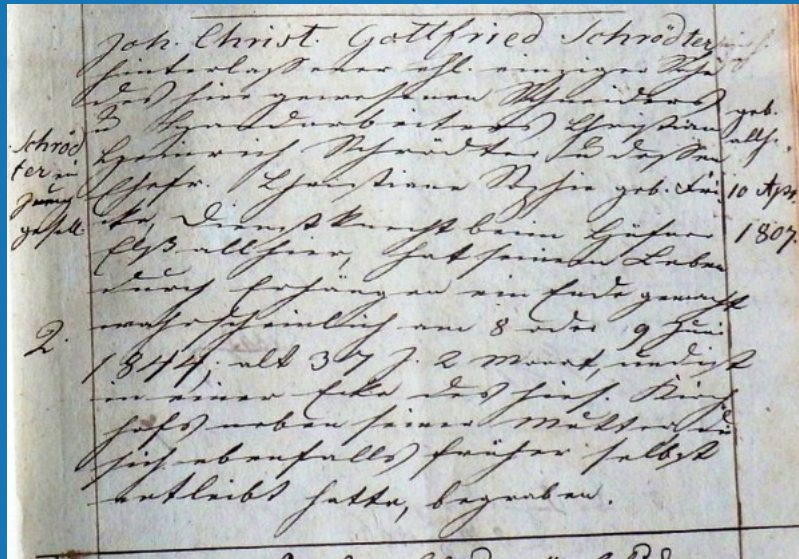 Joh. Christ. Gottfried Schrödter,
hinterlassener ehl. einziger Sohn
des hier gewesenen Schneiders
u Handarbeiters Christian
Heinrich Schrödter u dessen
Ehefr. Christiane Sophie geb. Fri-
ke, Dienstknecht beim Hüfner
Elß allhier, hat seinem Leben
durch Erhangen ein Ende gemacht
wahrscheinlich am 8 oder 9 Juni
1844, alt 37 J. 2 Monat, und ist
in einer Ecke des hies. Kirch
hofs neben seiner Mutter, die
sich ebenfalls früher selbst
entleibt hatte, begraben.
Schröd
ter ein
Jung
gesell.
2.
geb.
allh.
10 Apr.
1807.